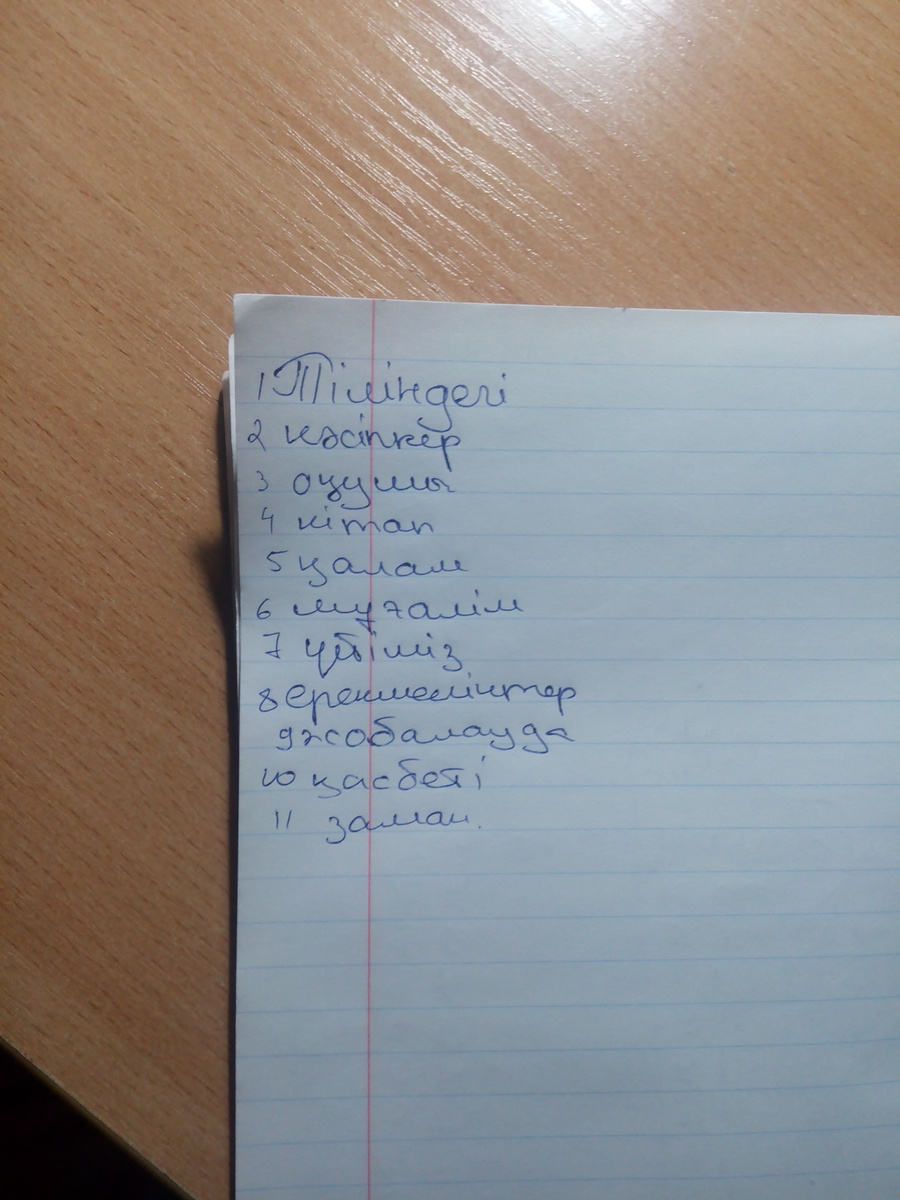 1 Тіліндегі
2 кәсіпкер
3 оқушы
4 кітап
5 қалам
6 мұғалім
7 үйіміз
8 ерекшеліктер
9 жобалауда
10 қасбеті
11 заман.